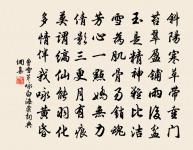 斜陽寒草帶重門
苔翠盈鋪雨後盆
玉是精神難比潔
雪為肌骨易銷魂
芳心一點嬌無力
倩影三更月有痕
莫謂縞仙能羽化
多情伴我詠黃昏
曹雪芹詠白海棠詞典